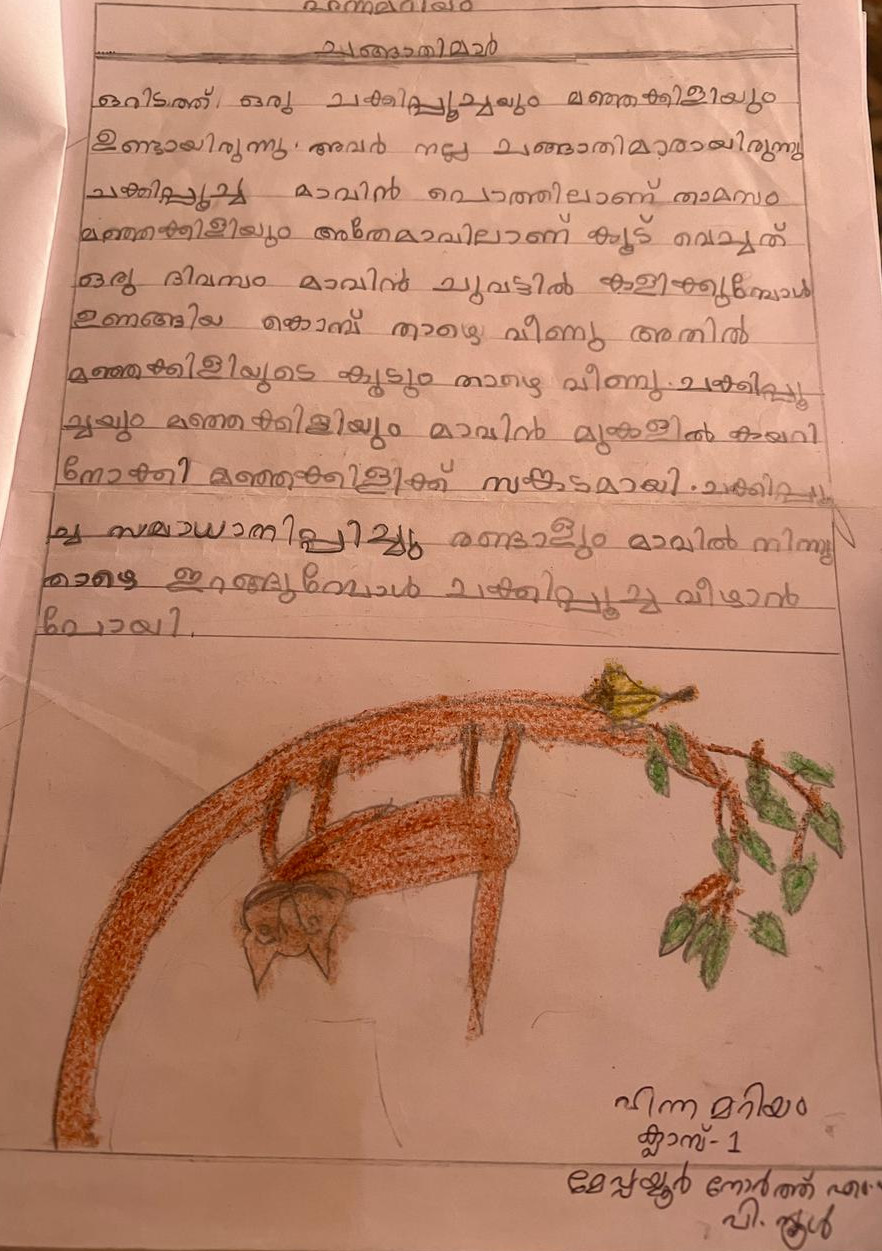 ചങ്ങാതിമാർ
ഒറിടത്ത് ഒരു ചക്കിപ്പൂച്ചയും മഞ്ഞക്കിളിയും
ഉണ്ടായിരുന്നു. അവർ നല്ല ചങ്ങാതിമാരായിരുന്നു
ചക്കിപ്പൂച്ച മാവിൻ പൊത്തിലാണ് താമസം
മഞ്ഞക്കിളിയും അതേമാവിലാണ് കൂട് വെച്ചത്
ഒരു ദിവസം മാവിൻ ചുവട്ടിൽ കളിക്കുമ്പോൾ
ഉണങ്ങിയ കൊമ്പ് താഴെ വീണു അതിൽ
മഞ്ഞക്കിളിയുടെ കൂടും താഴെ വീണു. ചക്കിപ്പൂ
ച്ചയും മഞ്ഞക്കിളിയും മാവിൻ മുകളിൽ കയറി
നോക്കി മഞ്ഞക്കിളിക്ക് സങ്കടമായി. ചക്കിപ്പൂ
ച്ച സമാധാനിപ്പിച്ചു രണ്ടാളും മാവിൽ നിന്നു
താഴെ ഇറങ്ങുമ്പോൾ ചക്കിപ്പൂച്ച വീഴാൻ
പോയി.
മറിയം
ക്ലാസ്-1
മേപ്പയ്യൂർ നോർത്ത് എൽ
പി. സ്കൂൾ